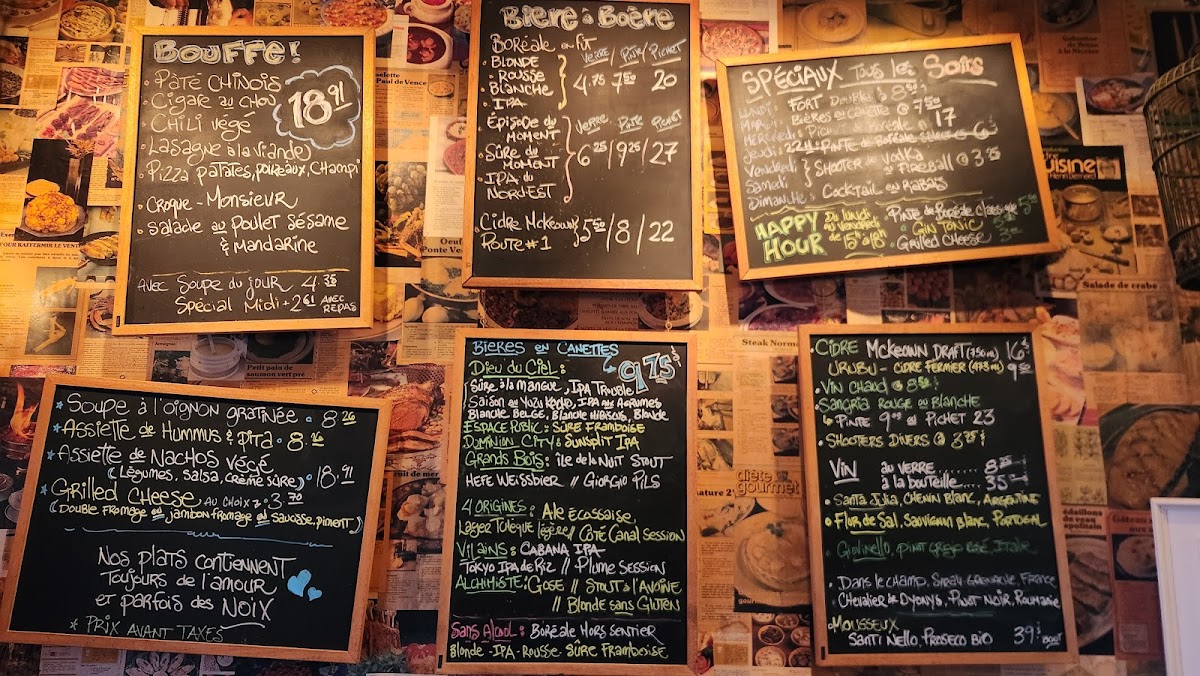 BOUFFE!
PÂTÉ CHINOIS
CIGARE AU CHOU
CHILI VÉGÉ
LASAGNE À LA VIANDE
PIZZA PATATES, POIREAUX, CHAMPI
18.91
CROQUE-MONSIEUR
SALADE AU POULET SÉSAME
& MANDARINE
AVEC SOUPE DU JOUR 4.35
SPÉCIAL MIDI + 2.61 AVEC REPAS
BIÈRE À BOÈRE
BORÉALE EN FÛT VERRE/PINTE/PICHET
BLONDE
ROUSSE
BLANCHE
IPA
4.75 7.50 20
ÉPISODE DU MOMENT
SÛRE DU MOMENT
IPA DU NORD EST
VERRE PINTE PICHET
6.25/9.25/27
CIDRE MCKEOWN
ROUTE #1
5.50/8/22
SPÉCIAUX TOUS LES SOIRS
LUNDI: FORT DOUBLE À 8.50
MARDI: BIÈRES EN CANETTE @ 7.50
MERCREDI: PICHET BORÉALE @ 17
JEUDI: 22H: PINTE DE BORÉALE
VENDREDI
SAMEDI
SHOOTER DE VODKA
OU FIREBALL @ 3.25
DIMANCHE: COCKTAIL EN RABAIS
HAPPY HOUR
DU LUNDI
AU VENDREDI
DE 15H À 18H
PINTE DE BORÉALE CLASSIQUE
GIN TONIC
GRILLED CHEESE
SOUPE À L'OIGNON GRATINÉE • 8.26
ASSIETTE DE HUMMUS & PITA • 8.26
ASSIETTE DE NACHOS VÉGÉ
(LÉGUMES, SALSA, CRÈME SÛRE) • 18.91
GRILLED CHEESE AU CHOIX 3.70
(DOUBLE FROMAGE OU JAMBON FROMAGE OU SAUCISSE, PIMENT)
NOS PLATS CONTIENNENT
TOUJOURS DE L'AMOUR
ET PARFOIS DES NOIX
* PRIX AVANT TAXES
BIÈRES EN CANETTES
9.75$
DIEU DU CIEL:
SÛRE À LA MANGUE, IPA TROUBLE
SAISON AU YUZU, IPA AUX AGRUMES
BLANCHE BELGE, BLANCHE HIBISCUS, BLONDE
ESPACE PUBLIC: SÛRE FRAMBOISE
DOMINION CITY: SUNSPLIT IPA
GRANDS BOIS: ÎLE DE LA NUIT STOUT
HEFE WEISSBIER // GIORGIO PILS
4 ORIGINES: ALE ÉCOSSAISE,
LAGER TCHÈQUE LÉGÈRE // CÔTÉ CANAL SESSION
VILAINS: CABANA IPA
TOKYO IPA DE RIZ // PLUME SESSION
ALCHIMISTE: GOSE // STOUT À L'AVOINE
// BLONDE SANS GLUTEN
SANS ALCOOL: BORÉALE HORS SENTIER
BLONDE - IPA - ROUSSE - SÛRE FRAMBOISE
CIDRE MCKEOWN DRAFT (950ML) 16.50
URUBU - CIDRE FERMIER (473ML) 9.50
VIN CHAUD @ 8.50
SANGRIA ROUGE OU BLANCHE
PINTE 9.00 PICHET 23
SHOOTERS DIVERS @ 3.75$
VIN AU VERRE........ 8.25
À LA BOUTEILLE..... 35
SANTA JULIA, CHENIN BLANC, ARGENTINE
FLOR DE SAL, SAUVIGNON BLANC, PORTUGAL
GIOVINELLO, PINOT GREGIO ROSÉ, ITALIE
DANS LE CHAMP, SIRAH GRENACHE, FRANCE
CHEVALIER DE DYONYS, PINOT NOIR, ROUMANIE
MOUSSEUX
SANTI NELLO, PROSECO BIO 39$ BOUT
Steak Norma
Salade de crabe
diète
gourmet
Petit pain de
saumon vert pré